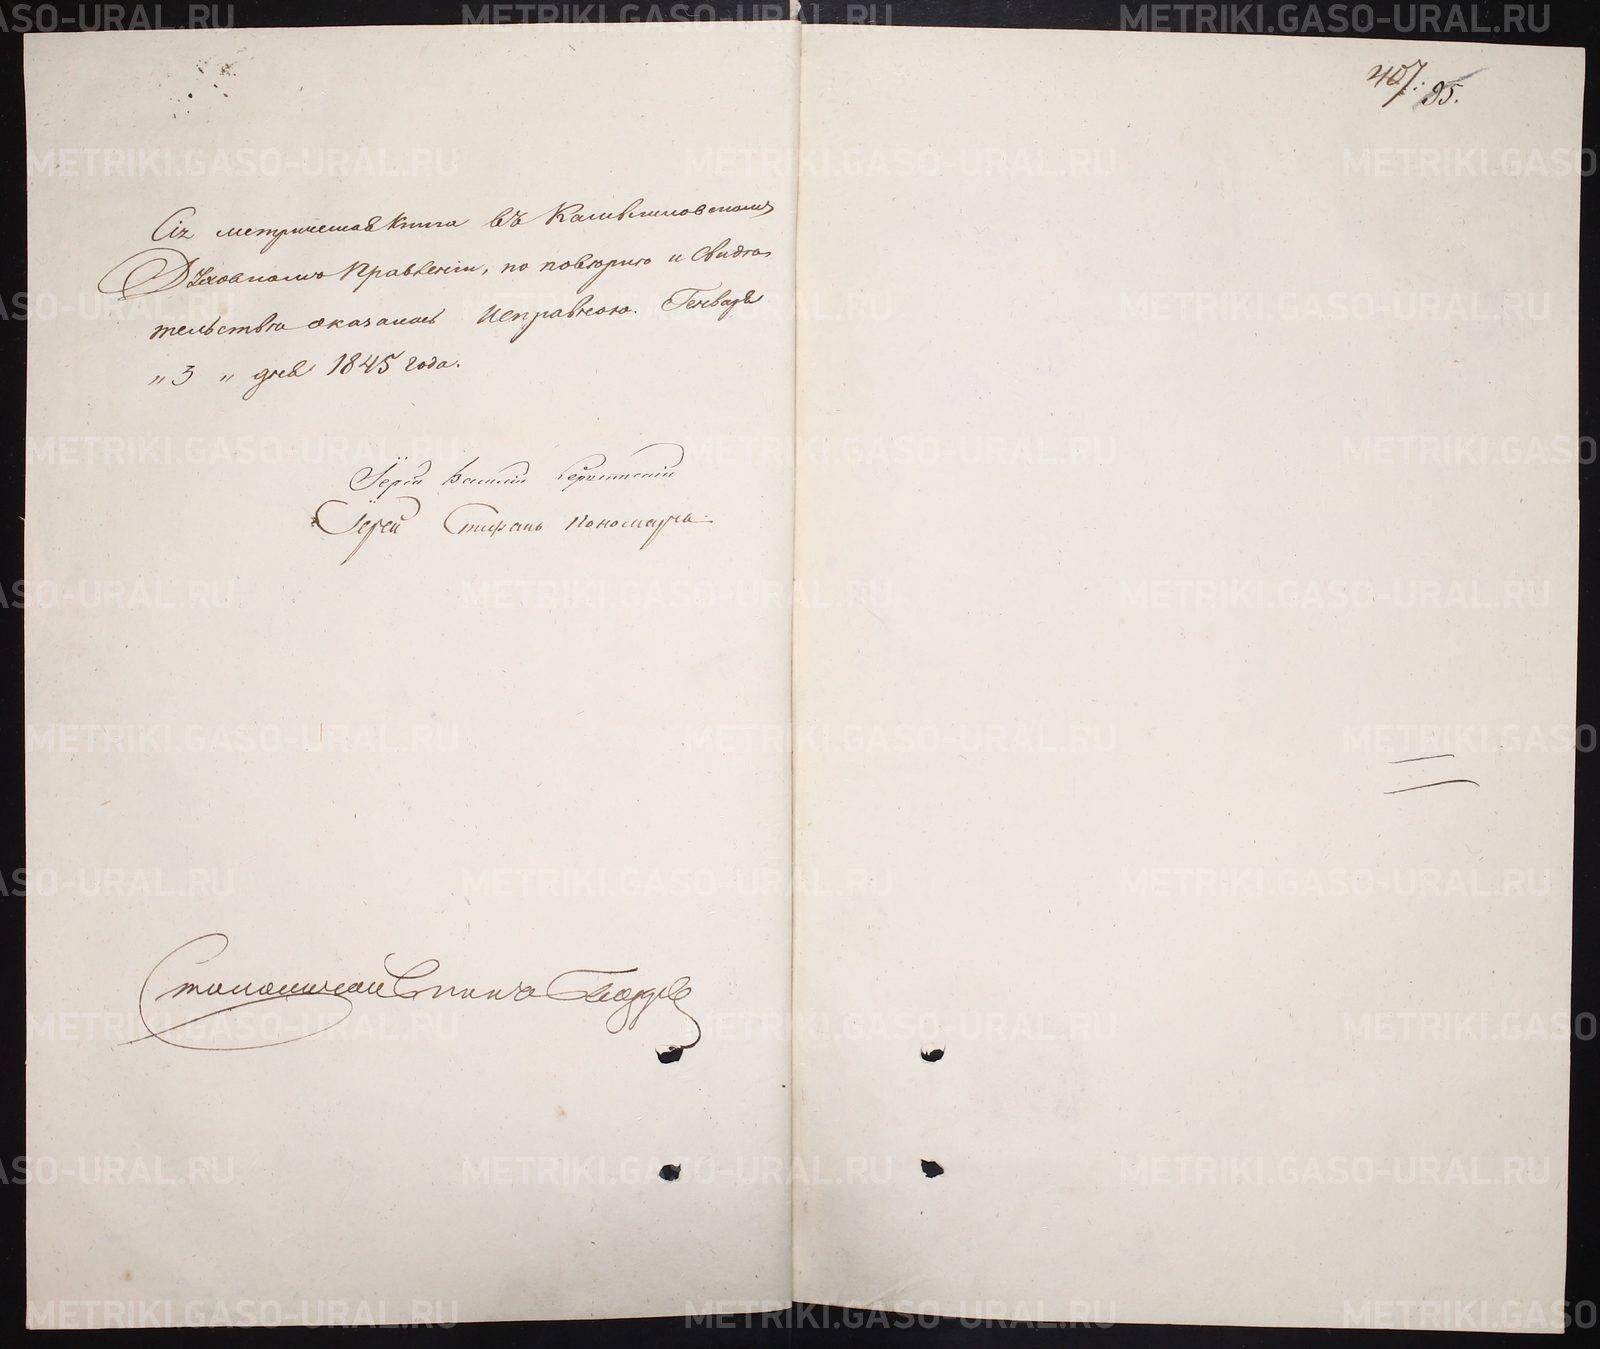 407. 95.
Сія метрическая книга въ Камышловскомъ
Духовномъ Правленіи, по повѣркѣ и свидѣ-
тельству оказалась исправною. Генваря
„ 3 „ дня 1845 года.
Іерей Василій
Іерей Стефанъ Пономаревъ.
Столоначальникъ
METRIKI.GASO-URAL.RU